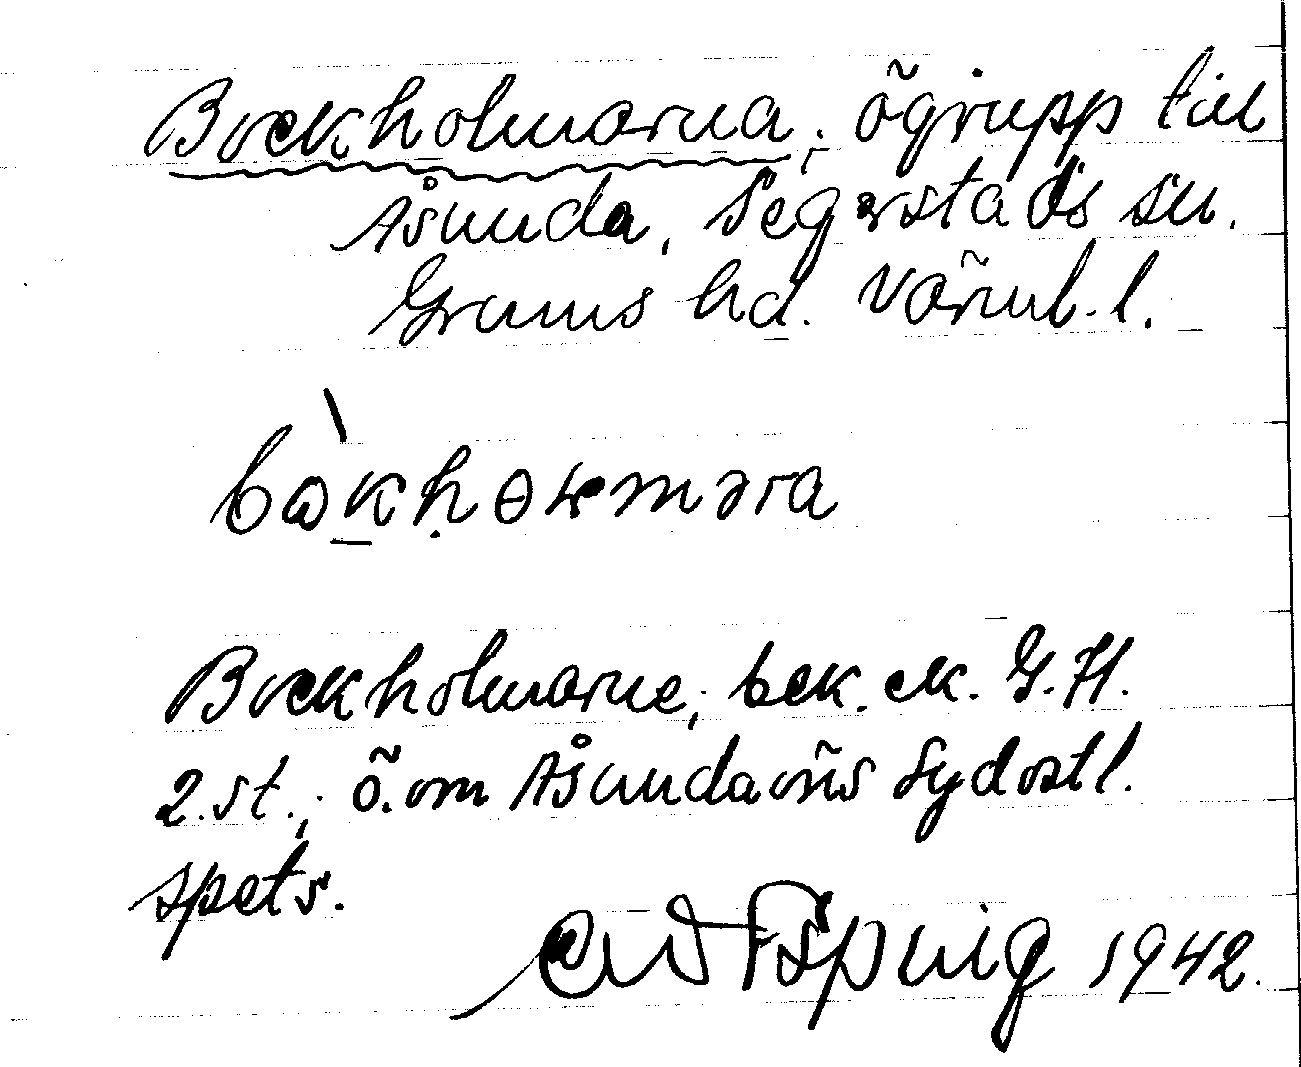 Bockholmarna, ögrupp till
Åsunda, Segerstads sn.
Grums hd. Värml. l.
bòkhɵɫməra
Bockholmarne, bek. ek. G.H.
2.st., ö. om Åsundaöns sydostl.
spets.
1942.